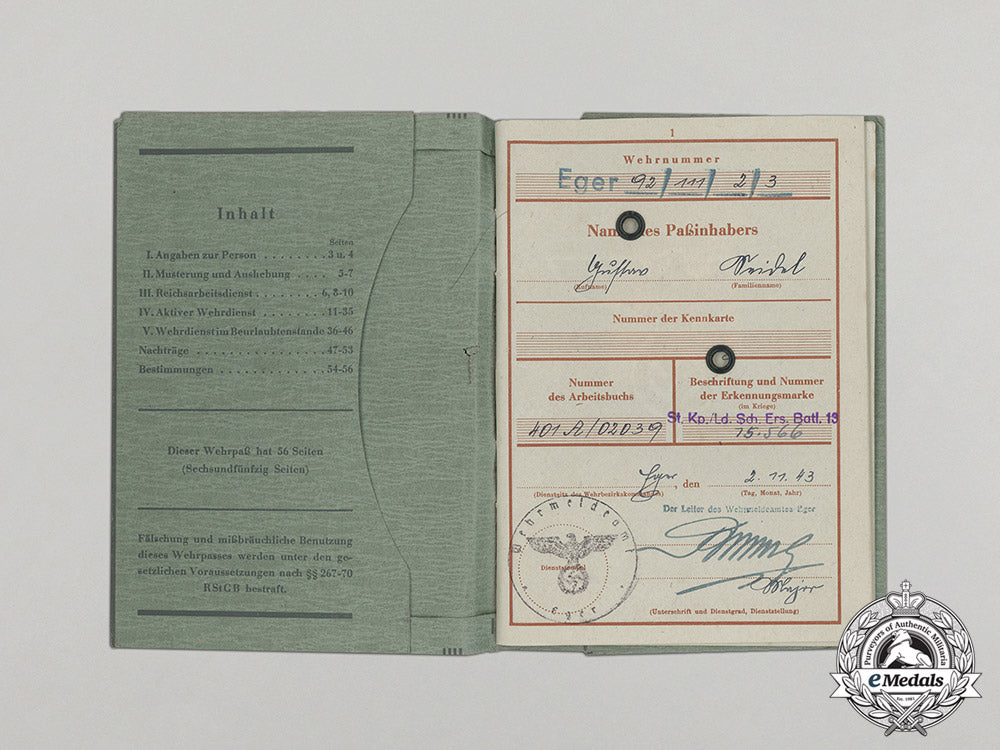 Inhalt
Seiten
I. Angaben zur Person . . . . . . . . 3 u. 4
II. Musterung und Aushebung . . . . 5-7
III. Reichsarbeitsdienst . . . . . . . . . 6, 8-10
IV. Aktiver Wehrdienst . . . . . . . . . 11-35
V. Wehrdienst im Beurlaubtenstande 36-46
Nachträge . . . . . . . . . . . . . . . . . 47-53
Bestimmungen . . . . . . . . . . . . . . 54-56
Dieser Wehrpaß hat 56 Seiten
(Sechsundfünfzig Seiten)
Fälschung und mißbräuchliche Benutzung
dieses Wehrpasses werden unter den ge-
setzlichen Voraussetzungen nach §§ 267-70
RStGB bestraft.
1
Wehrnummer
Eger 92/111/2/3
des Paßinhabers
Gustav Seidel
(Rufname) (Familienname)
Nummer der Kennkarte
Nummer
des Arbeitsbuchs
401 A/02039
Beschriftung und Nummer
der Erkennungsmarke
(im Kriege)
St. Kp./Ld. Sch. Ers. Batl. 13
15.566
Eger, den 2.11.43
(Dienstsitz des Wehrbezirkskommandos) (Tag, Monat, Jahr)
Der Leiter des Wehrmeldeamtes Eger
Wehrmeldeamt
Dienststempel
Eger
Major
(Unterschrift und Dienstgrad, Dienststellung)
Purveyors of Authentic Militaria
eMedals
Est. 1981